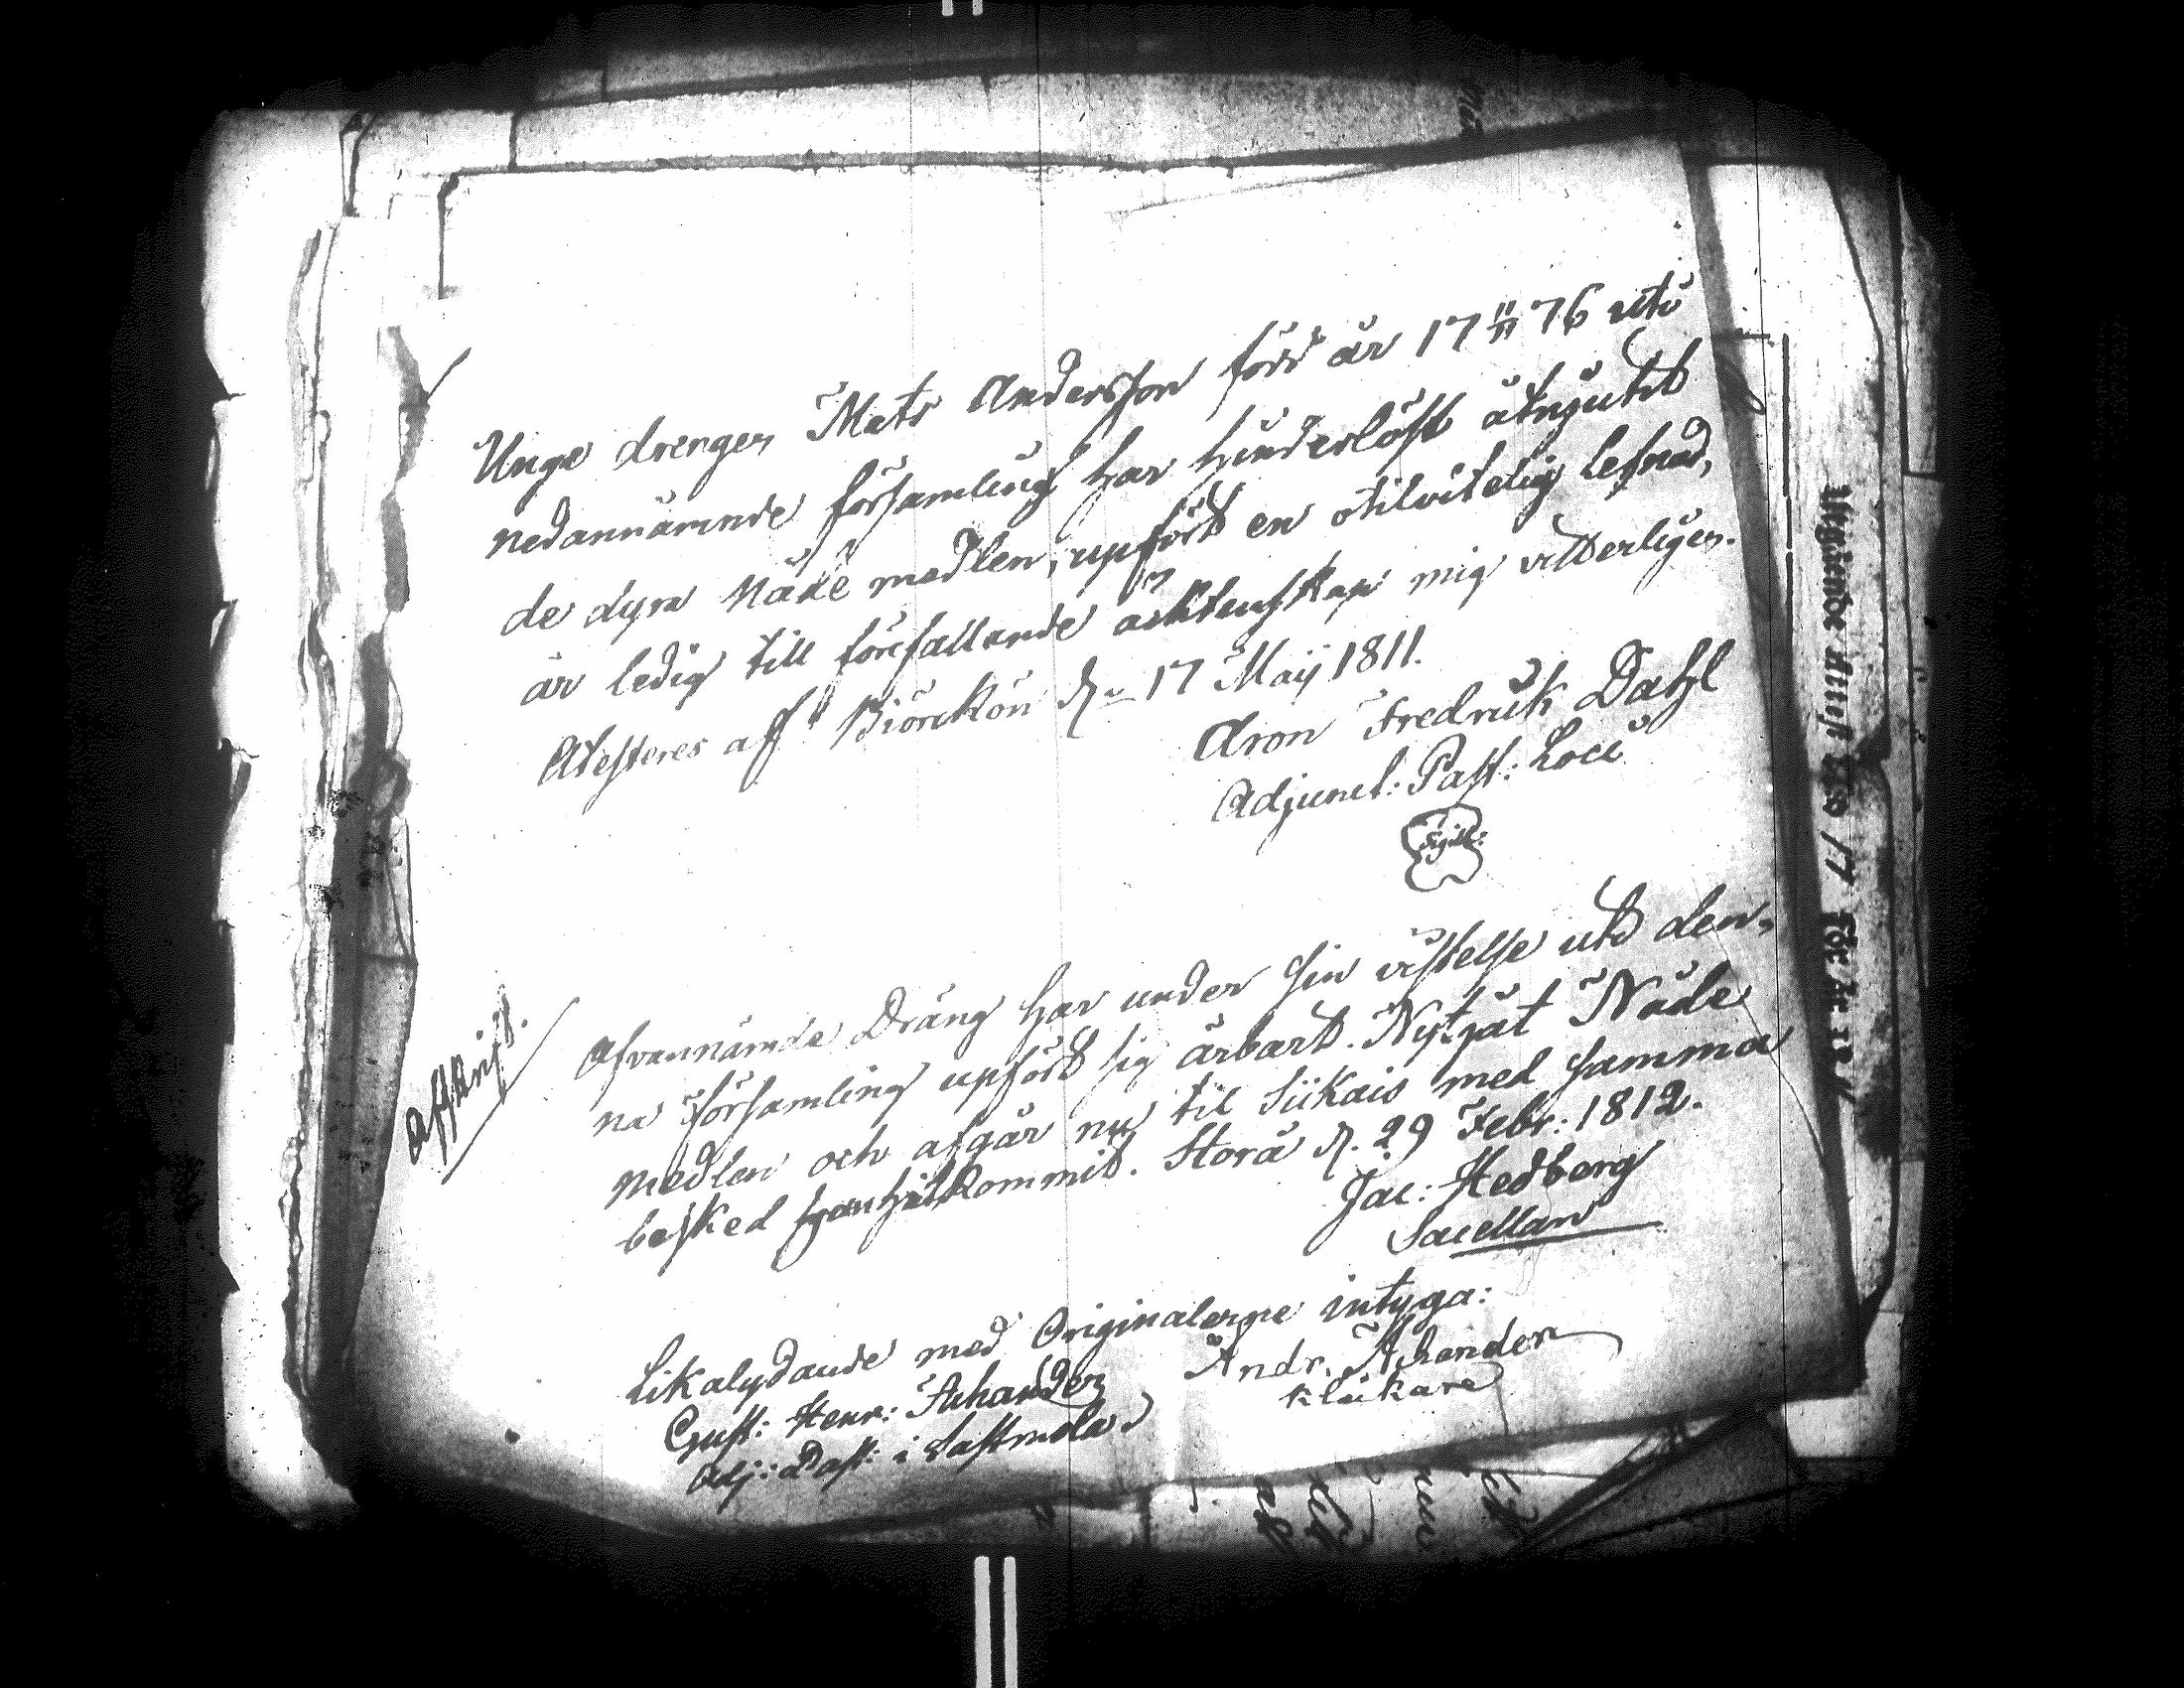 Unge drengen Mats Andersson född år 17 11/11 76 uti
nedannämnde församling har hinderlöst åtnjutit
de dyra Nåde medlen, upfört en otilvitelig lefnad,
är ledig till förefallande äcktenskap mig vitterligen.
Atesteres af Biörckön d. 17 Maij 1811.
Aron Fredrick Dahl
Adjunct: Past: Loci
Sigill:
Afskrift.
Ofvannämde Dräng har under sin vistelse uti den-
na församling upfört sig ärbart. Nytjat Nåde
medlen och afgår nu til Siikais med samma
besked som hitkommit. Storå d. 29 Febr: 1812.
Jac: Hedberg
Sacellan
Likalydande med Originalerne intyga:
Gust: Henr: Achander
Andr. Achander
Adj: Past: i Sastmola
klåkare
Utgående Attest